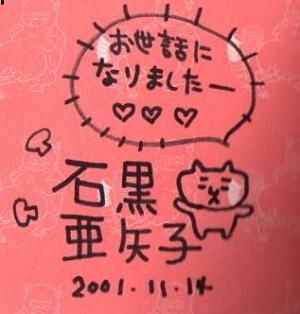 お世話に
なりましたー
♡♡♡
石黒
亜矢子
2001.11.14